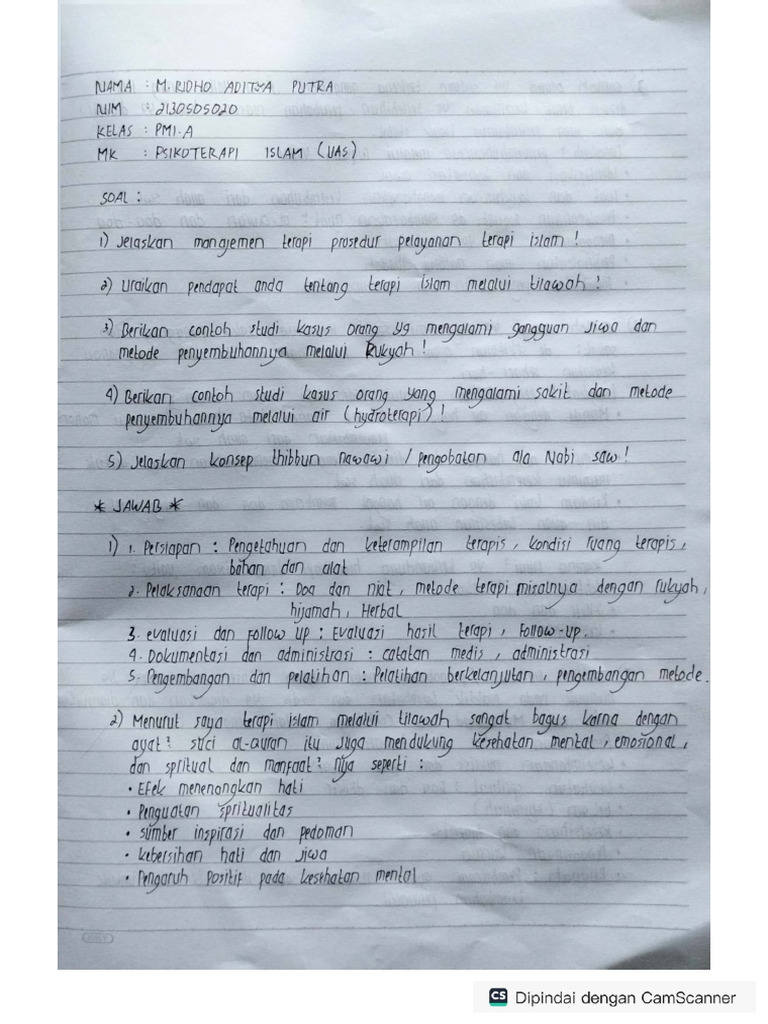 NAMA : M. RIDHO ADITYA PUTRA
NIM : 2130505020
KELAS : PMI-A
MK : PSIKOTERAPI ISLAM (UAS)
SOAL :
1) Jelaskan manajemen terapi prosedur pelayanan terapi islam !
2) Uraikan pendapat anda tentang terapi islam melalui tilawah !
3) Berikan contoh studi kasus orang yg mengalami gangguan jiwa dan
metode penyembuhannya melalui Rukyah !
4) Berikan contoh studi kasus orang yang mengalami sakit dan metode
penyembuhannya melalui air (hydroterapi) !
5) Jelaskan konsep thibbun nawawi / pengobatan ala Nabi saw !
* JAWAB *
1) 1. Persiapan : Pengetahuan dan keterampilan terapis, kondisi ruang terapis,
bahan dan alat
2. Pelaksanaan terapi : Doa dan niat, metode terapi misalnya dengan rukyah,
hijamah, Herbal
3. evaluasi dan Follow up : Evaluasi hasil terapi, Follow-up.
4. Dokumentasi dan administrasi : catatan medis, administrasi
5. Pengembangan dan pelatihan : Pelatihan berkelanjutan, pengembangan metode.
2) Menurut saya terapi islam melalui tilawah sangat bagus karna dengan
ayat² suci al-quran itu juga mendukung kesehatan mental, emosional,
dan spritual dan manfaat² nya seperti :
• Efek menenangkan hati
• Penguatan spritualitas
• sumber inspirasi dan pedoman
• kebersihan hati dan jiwa
• Pengaruh Positif pada kesehatan mental
CS Dipindai dengan CamScanner